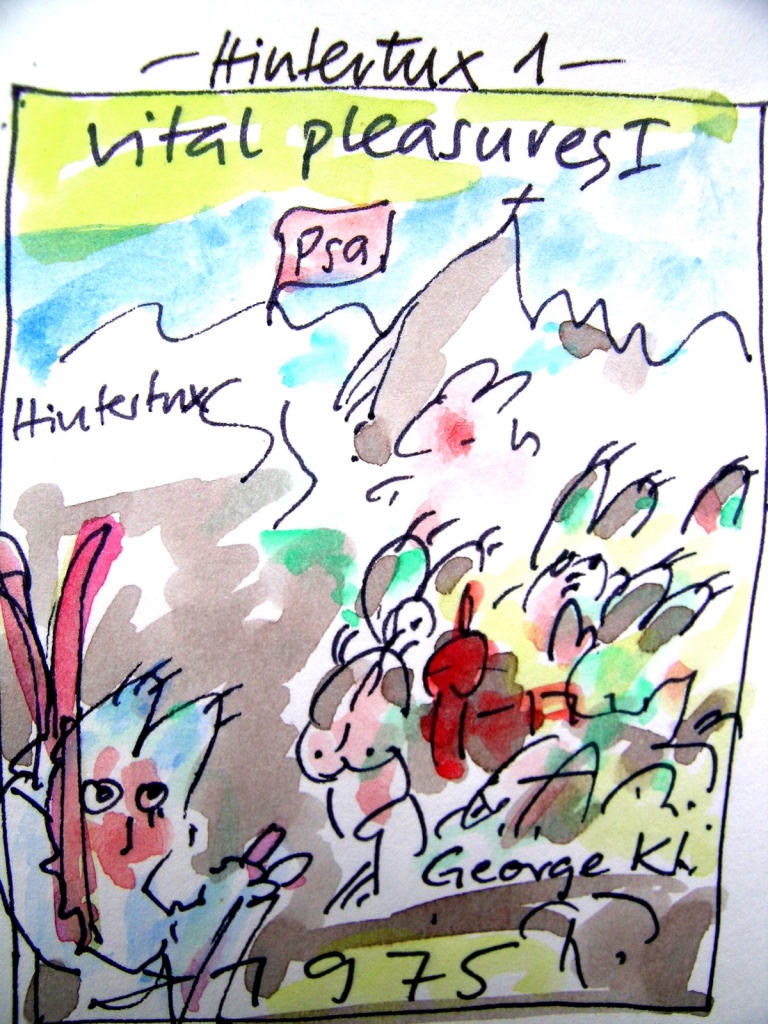 - Hintertux 1 -
Vital pleasures I
Psa
Hintertux
George Kl.
1975